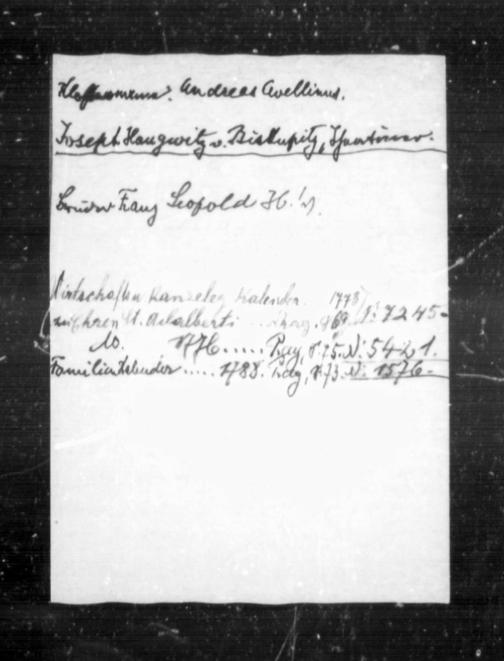 Andreas Avellinus.
Joseph Haugwitz v. Biskupitz,
Bruder Franz Leopold H.
Wirtschaften Kanzeley Kalender. 1773
zu Ehren St. Adalberti Prag, 69. N: 7245.
do. 1776..... Prag, 75. N: 5421.
Familienkalender ..... 1788. Prag, 73. N: 1576.